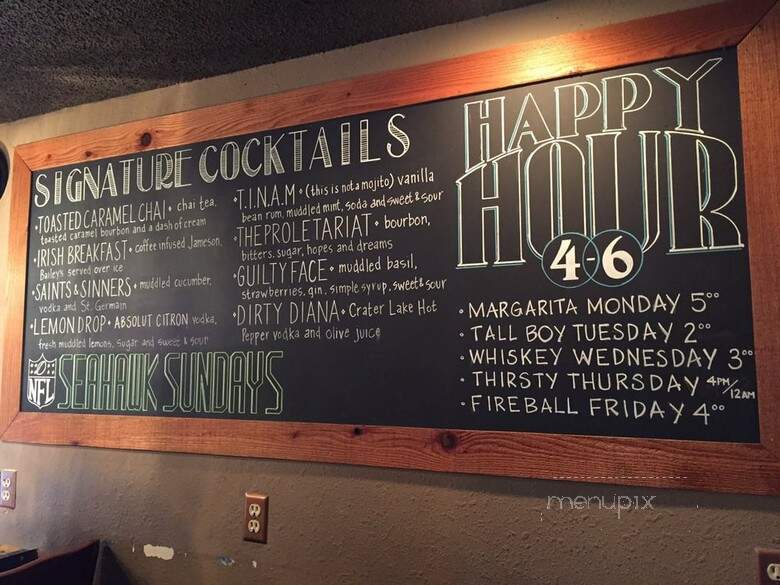 SIGNATURE COCKTAILS
• TOASTED CARAMEL CHAI • chai tea,
toasted caramel bourbon and a dash of cream
• IRISH BREAKFAST • coffee infused Jameson,
Bailey's served over ice
• SAINTS & SINNERS • muddled cucumber,
vodka and St. Germain
• LEMON DROP • ABSOLUT CITRON vodka,
fresh muddled lemons, sugar and sweet & sour
• T.I.N.A.M • (this is not a mojito) vanilla
bean rum, muddled mint, soda and sweet & sour
• THE PROLETARIAT • bourbon,
bitters, sugar, hopes and dreams
• GUILTY FACE • muddled basil,
strawberries, gin, simple syrup, sweet & sour
• DIRTY DIANA • Crater Lake Hot
Pepper vodka and olive juice
NFL SEAHAWK SUNDAYS
HAPPY
HOUR
4-6
• MARGARITA MONDAY 5⁰⁰
• TALL BOY TUESDAY 2⁰⁰
• WHISKEY WEDNESDAY 3⁰⁰
• THIRSTY THURSDAY 4PM/12AM
• FIREBALL FRIDAY 4⁰⁰
menupix